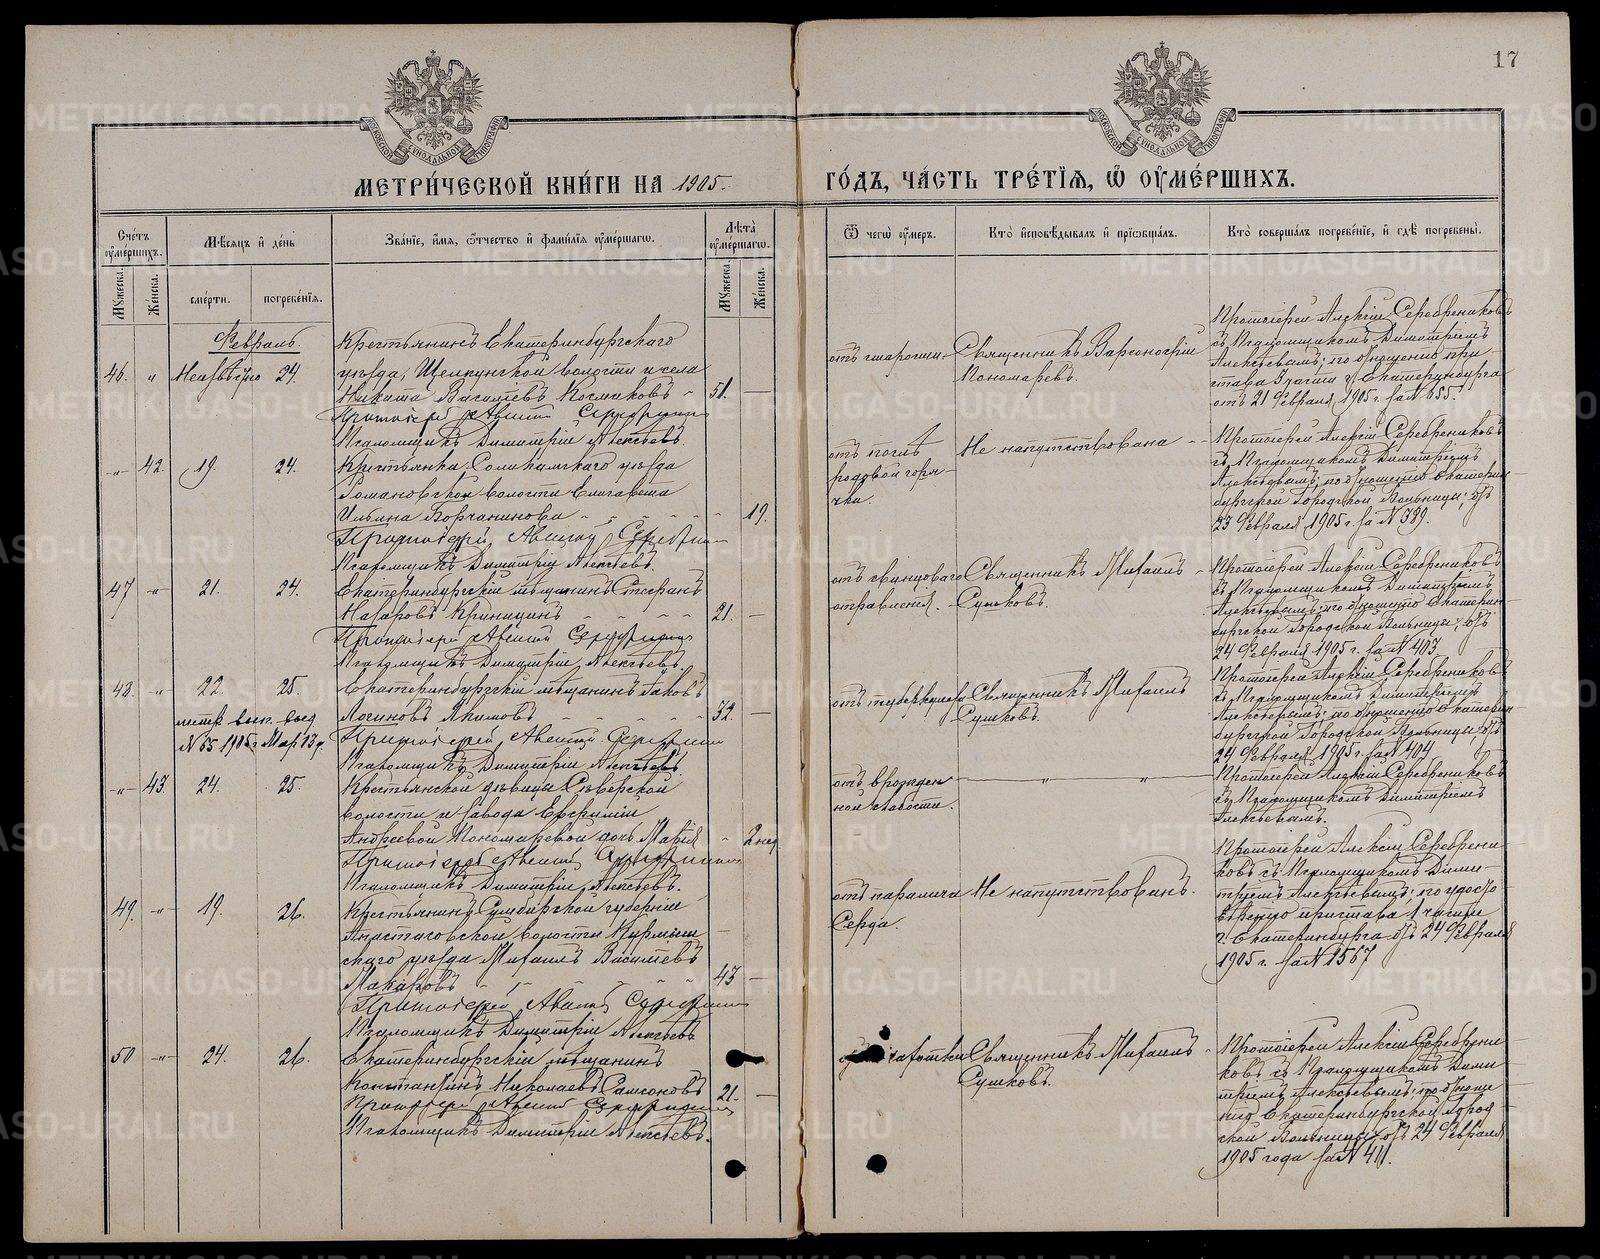 17
МЕТРИ́ЧЕСКОЙ КНИ́ГИ НА 1905.
ГО́ДЪ, ЧА́СТЬ ТРЕ́ТІѦ, Ѿ ОУ҆МЕ́РШИХЪ.
Сче́тъ оу҆ме́ршихъ.
Мꙋ́жеска. Же́нска.
Мѣ́сѧцъ и҆ де́нь
сме́рти. погребе́нїѧ.
Зва́нїе, и҆́мѧ, ѻ҆́тчество и҆ фами́лїѧ оу҆ме́ршагѡ.
Лѣ́та оу҆ме́ршагѡ.
Мꙋ́жеска. Же́нска.
Ѿ чегѡ̀ оу҆́меръ.
Кто̀ и҆сповѣ́дывалъ и҆ прїѡбща́лъ.
Кто̀ соверша́лъ погребе́нїе, и҆ гдѣ̀ погребены̀.
Февраль.
46. " Неизвѣстно 24.
Крестьянинъ Екатеринбургскаго
уѣзда, Щелкунской волости и села
Никита Василіевъ Космаковъ - 51. —
Протоіерей Алексій Серебрениковъ
Псаломщикъ Димитрій Алексѣевъ.
Священникъ
Пономаревъ.
Протоіерей Алексій Серебрениковъ
съ Псаломщикомъ Димитріемъ
Алексѣевымъ; по отношенію при-
става 2 части г. Екатеринбурга
отъ 21 Февраля 1905 г. за №
-"- 42. 19. 24.
Крестьянка Соликамскаго уѣзда
Романовской волости Елисавета
Ильина Борчанинова - - - - - 19.
Протоіерей Алексій Серебрениковъ
Псаломщикъ Димитрій Алексѣевъ.
отъ послѣ
родовой горя-
чки.
Не напутствована
Протоіерей Алексій Серебрениковъ
съ Псаломщикомъ Димитріемъ
Алексѣевымъ; по отношенію Екатерин-
бургской Городской Больницы; отъ
23 Февраля 1905 г. за № 389.
47 -"- 21. 24.
Екатеринбургскій мѣщанинъ Стефанъ
Назаровъ Криницинъ - - - - 21. —
Протоіерей Алексій Серебрениковъ
Псаломщикъ Димитрій Алексѣевъ.
отъ свинцоваго
отравленія.
Священникъ Михаилъ
Сушковъ.
Протоіерей Алексій Серебрениковъ
съ Псаломщикомъ Димитріемъ
Алексѣевымъ; по отношенію Екатерин-
бургской Городской Больницы; отъ
24 Февраля 1905 г. за № 403
48. -"- 22. 25.
Екатеринбургскій мѣщанинъ Іаковъ
Логиновъ Якимовъ - - - - - 32. —
Протоіерей Алексій Серебрениковъ
Псаломщикъ Димитрій Алексѣевъ.
метр. вып. выд.
№ 65 1905 г. Мар. 13 д.
отъ туберкулеза
Священникъ Михаилъ
Сушковъ.
Протоіерей Алексій Серебрениковъ
съ Псаломщикомъ Димитріемъ
Алексѣевымъ; по отношенію Екатерин-
бургской Городской Больницы отъ
24 Февраля 1905 г. за № 404
-"- 43. 24. 25.
Крестьянской дѣвицы Сѣверской
волости и завода Евфиміи
Андреевой Пономаревой дочь Марія - 2 нед.
Протоіерей Алексій Серебрениковъ
Псаломщикъ Димитрій Алексѣевъ.
отъ врожден-
ной слабости.
Протоіерей Алексій Серебрениковъ
съ Псаломщикомъ Димитріемъ
Алексѣевымъ.
49. -"- 19. 26.
Крестьянинъ Симбирской губерніи
Анастасовской волости Курмыш-
скаго уѣзда Михаилъ Василіевъ
Макаровъ - - - - - 43 —
Протоіерей Алексій Серебрениковъ
Псаломщикъ Димитрій Алексѣевъ
отъ паралича
Сердца.
Не напутствованъ.
Протоіерей Алексій Серебрени-
ковъ съ Псаломщикомъ Дими-
тріемъ Алексѣевымъ; по удосто-
вѣренію пристава 1 части
г. Екатеринбурга отъ 24 Февраля
1905 г. за № 1567
50 -"- 24. 26.
Екатеринбургскій мѣщанинъ
Константинъ Николаевъ Самсоновъ 21. —
Протоіерей Алексій Серебрениковъ
Псаломщикъ Димитрій Алексѣевъ.
чахотки
Священникъ Михаилъ
Сушковъ.
Протоіерей Алексій Серебрени-
ковъ съ Псаломщикомъ Дими-
тріемъ Алексѣевымъ; по отноше-
нію Екатеринбургской Город-
ской Больницы отъ 24 Февраля
1905 года за № 411.